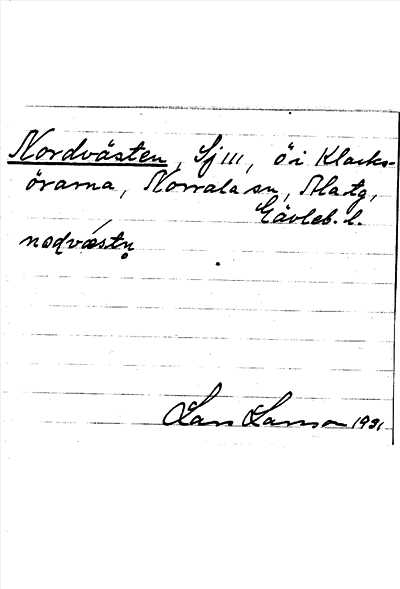 Nordvästen, Sj III, ö i Klacks-
örarna, Norrala sn, Ala tg,
Gävleb. l.
nodvǽstn̥
Lars Larsson 1931